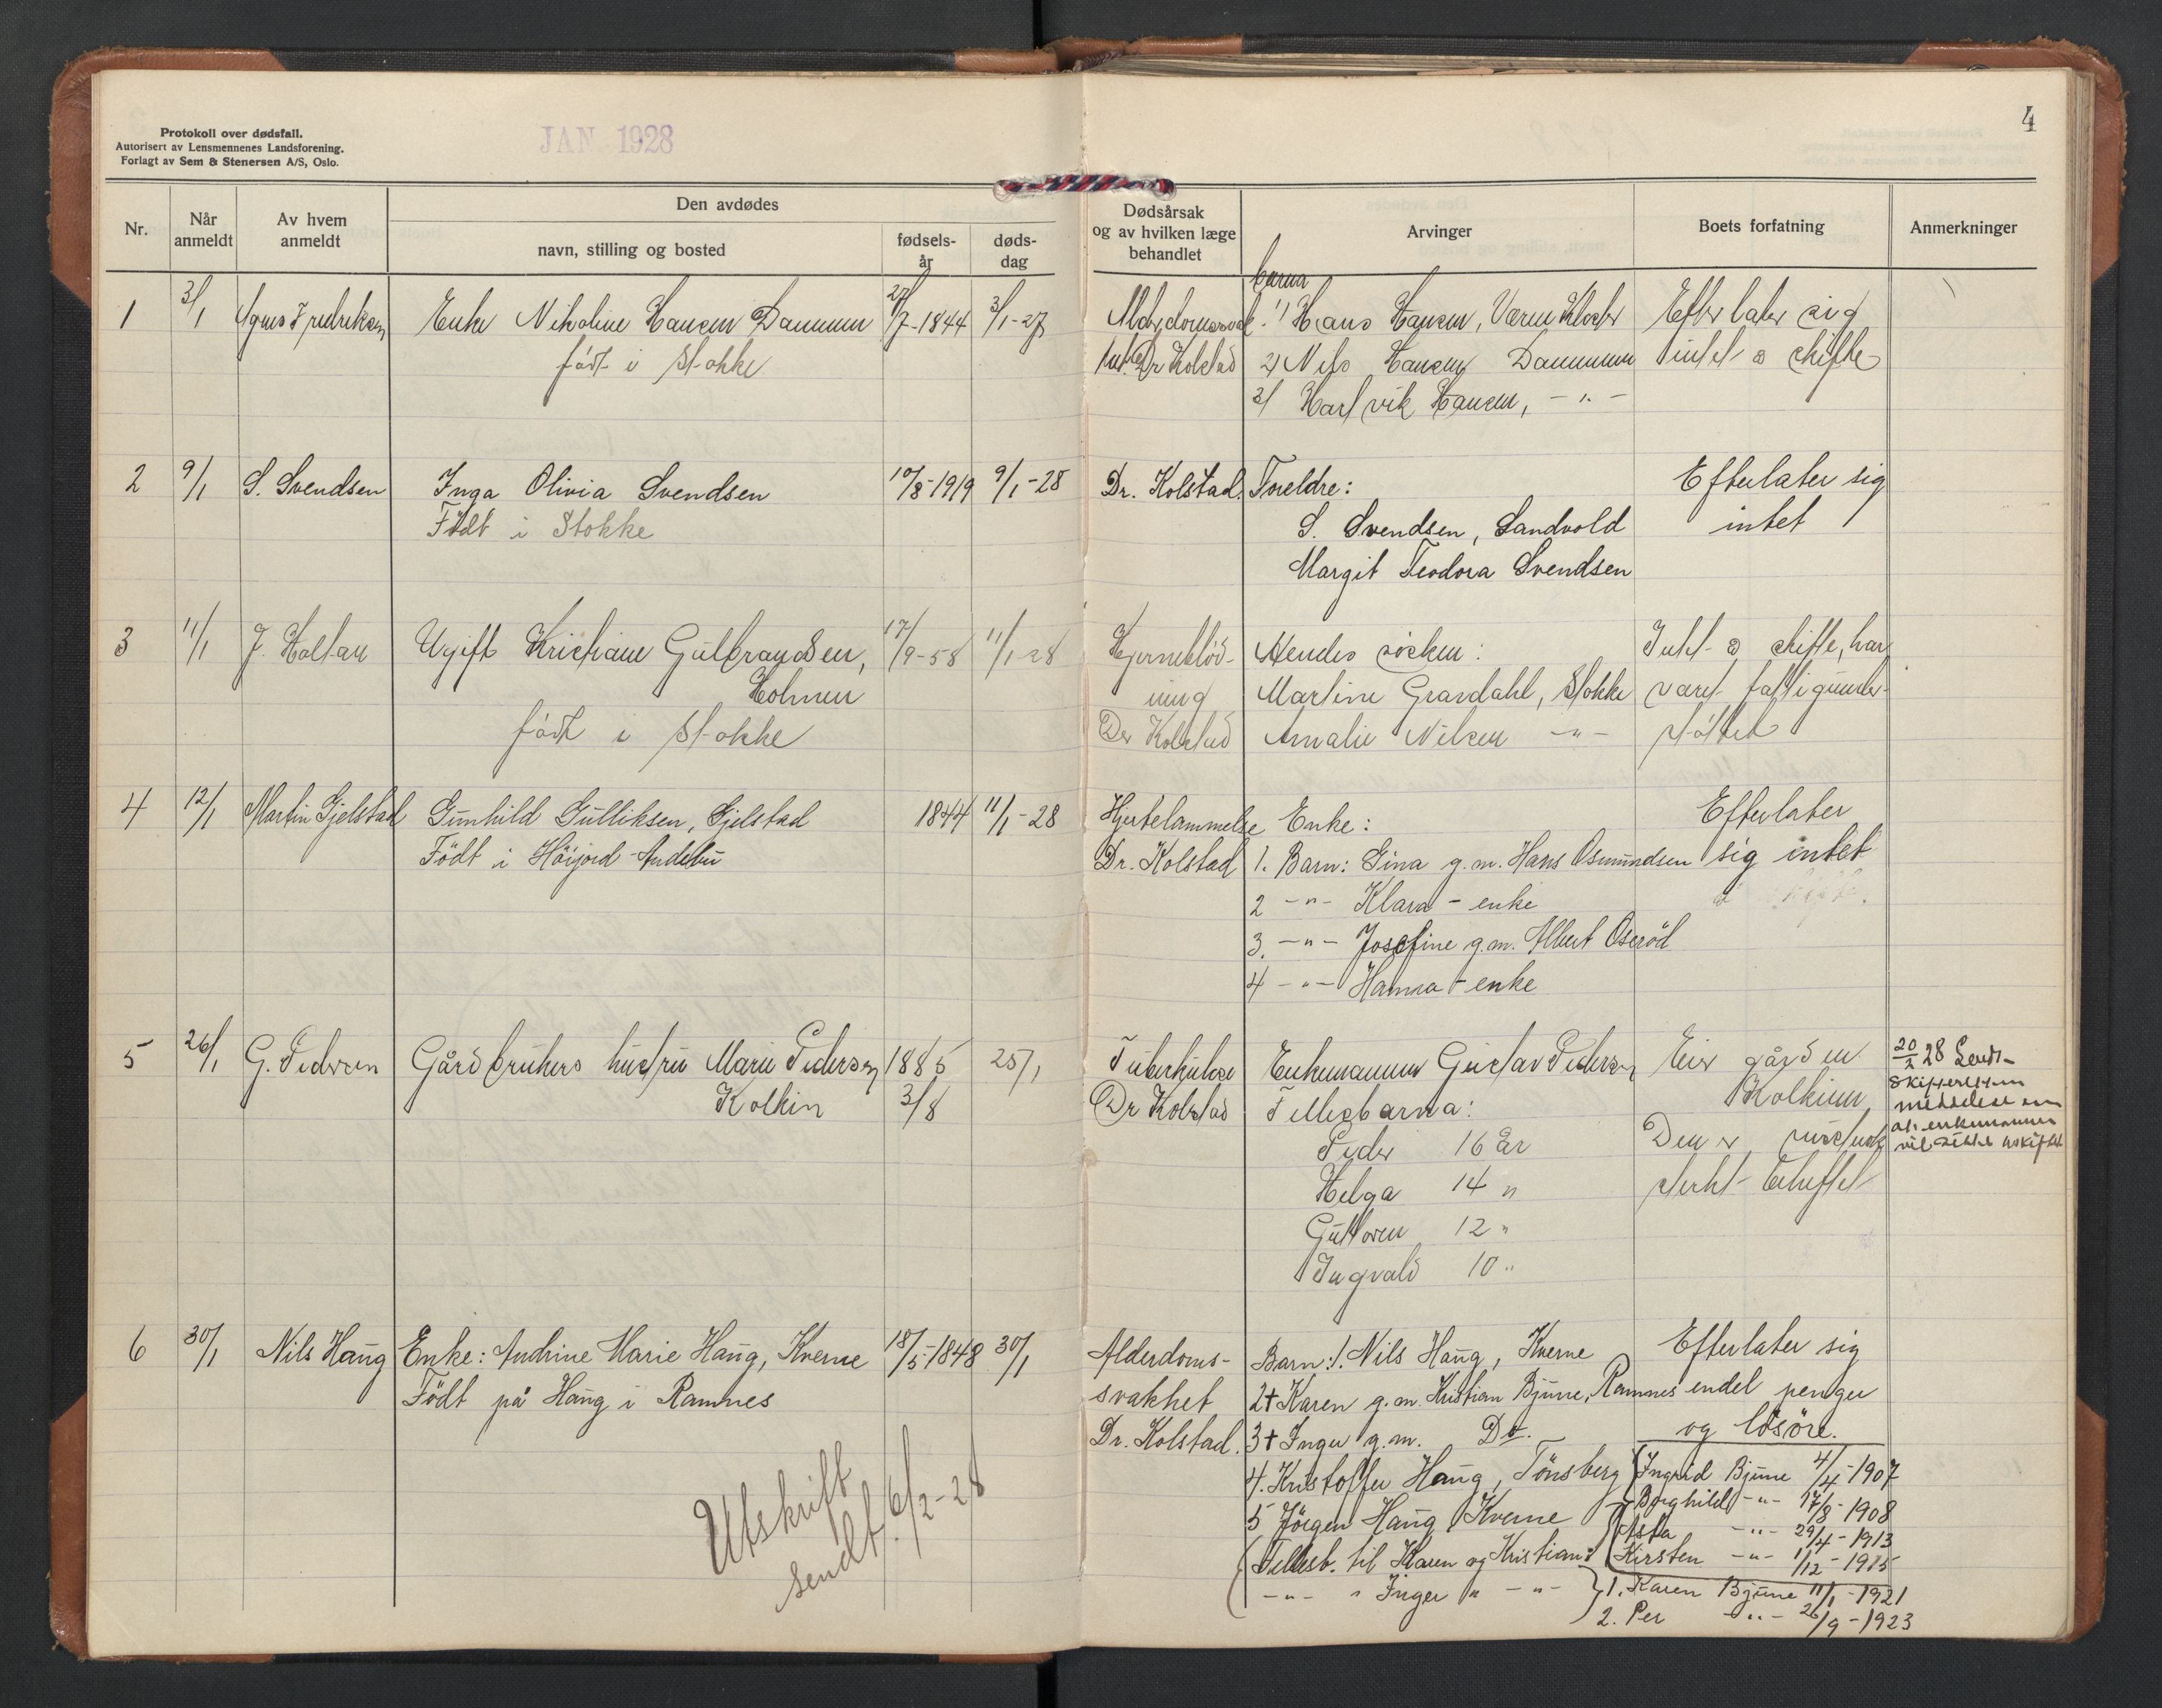 Protokoll over dødsfall.
Autorisert av Lensmennenes Landsforening.
Forlagt av Sem & Stenersen A/S, Oslo.
JAN. 1928
4
Nr.
Når anmeldt
Av hvem anmeldt
Den avdødes
navn, stilling og bosted
fødsels-år
døds-dag
Dødsårsak og av hvilken læge behandlet
Arvinger
Boets forfatning
Anmerkninger
1 3/1 Agnes Fredriksen Enke Nikoline Hansen Dammen 27/7-1844 3/1-27
født i Stokke
Alderdomssvak.
Dr Kolstad
barna
1) Hans Hansen, Værne Kloster
2) Nils Hansen Dammen
3) Hartvik Hansen, -"-
Efterlater sig
intet å skifte
2 9/1 S. Svendsen Inga Olivia Svendsen 10/8-1919 9/1-28
Født i Stokke
Dr. Kolstad.
Foreldre:
S. Svendsen, Sandvold
Margit Teodora Svendsen
Efterlater sig
intet
3 11/1 J. Holtan Ugift Kristiane Gulbrandsen, 17/9-58 11/1-28
Holmen
født i Stokke
Hjerneblød-
ning
Dr Kolstad
Hendes søsken:
Martine Gravdahl, Stokke
Amalie Nilsen -"-
Intet å skifte, har
vært fattigunder-
støttet
4 12/1 Martin Gjelstad Gunhild Gulliksen, Gjelstad 1844 11/1-28
Født i Höijord-Andebu
Hjertelammelse
Dr. Kolstad
Enke:
1. Barn: Gina g.m. Hans Osmundsen
2 -"- Klara - enke
3. -"- Josefine g.m. Albert Oseröd
4 -"- Hanna - enke
Efterlater
sig intet
5 26/1 G. Pedersen Gårdbrukers hustru Marie Pedersen 1885 25/1
Kolkin 3/8
Tuberkulose
Dr Kolstad
Enkemannen Gustav Pedersen
Fellesbarna:
Peder 16 år
Helga 14 "
Guttoren 12 "
Ingvald 10 "
Eier gården
Kolkinn
Den er
sterkt beheftet
20/2 28 Sendt
meddelelse om
at enkemannen
vil sitte i uskiftet
6 30/1 Nils Haug Enke: Andrine Marie Haug, Kverne 18/5-1848 30/1
Født på Haug i Ramnes
Alderdoms-
svakhet
Dr. Kolstad.
Barn: 1. Nils Haug, Kverne
2 + Karen g.m. Kristian Bjune, Ramnes
3 + Inger g.m. Do.
4. Kristoffer Haug, Tönsberg
5 Jörgen Haug Kverne
Fellesb. til Karen og Kristian:
-"- " Inger " -"-
Efterlater sig
endel penger
og lösöre.
Ingrid Bjune 4/4-1907
Borghild -"- 17/8-1908
Asta -"- 29/4-1913
Kirsten -"- 1/12-1915
1. Karen Bjune 11/1-1921
2. Per -"- 26/9-1923
Utskrift
sendt 6/2-28